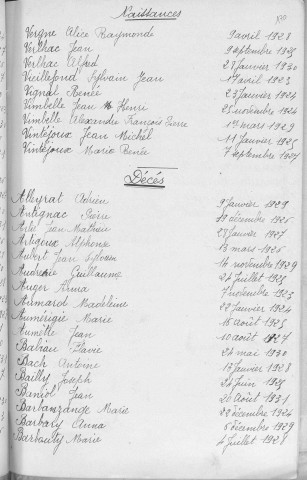 Naissances
Vergne Alice Raymonde 9 avril 1928
Verlhac Jean 9 septembre 1925
Verlhac Alfred 28 janvier 1930
Vieillefond Sylvain Jean 1er avril 1923
Vignal Renée 23 janvier 1924
Vimbelle Jean Henri 25 novembre 1924
Vimbelle Alexandre François Pierre 1er mars 1929
Vintéjoux Jean Michel 11 janvier 1925
Vintéjoux Marie Renée 7 septembre 1927
Décès
Alleyrat Adrien 9 janvier 1929
Antignac 29 décembre 1926
Jean Mathieu 28 janvier 1927
Artigeux Alphonse 13 mars 1926
Aubert Jean Sylvain 16 novembre 1929
Audrerie Guillaume 24 juillet 1925
Auger Irma 7 novembre 1923
Aumard Madeleine 22 janvier 1924
Aumérigie Marie 18 août 1925
Aumette Jean 10 août 1927
Baliau Flavie 24 mai 1930
Bach Antoine 17 janvier 1928
Bailly Joseph 24 juin 1925
Baniol Jean 20 août 1931
Barbanzange Marie 28 décembre 1924
Barbary Anna 6 décembre 1929
Barbouty Marie 4 juillet 1928